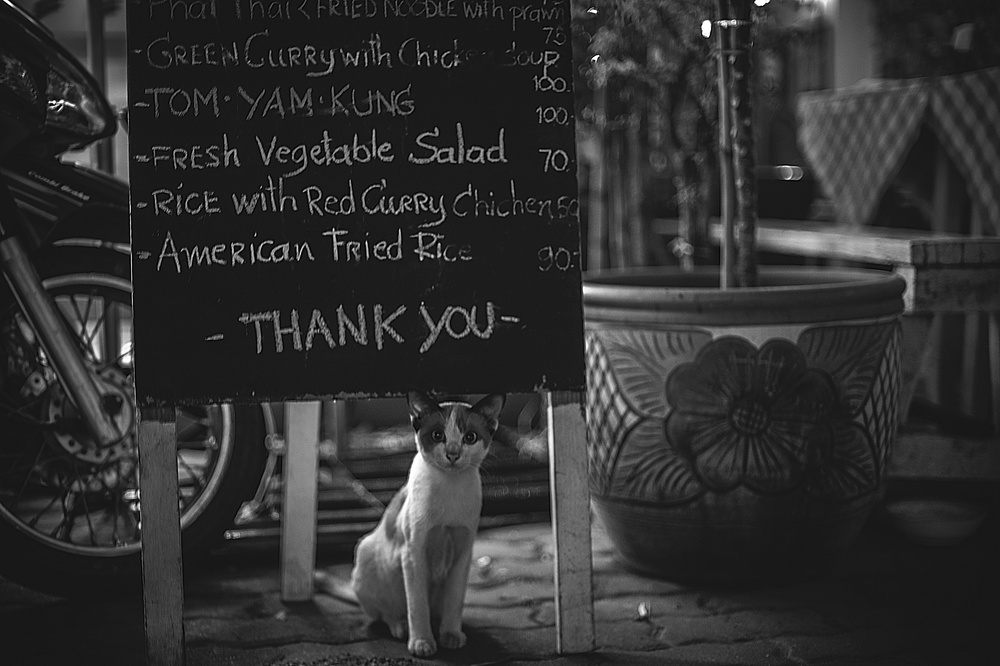 Phai Thai < FRIED NOODLE with prawn
75
- GREEN CURRY with Chicken Soup
100.
- TOM · YAM · KUNG 100.
- FRESh Vegetable Salad 70.
- RICE with Red CURRY Chichen 50
- American Fried Rice 90.-
- THANK YOU -